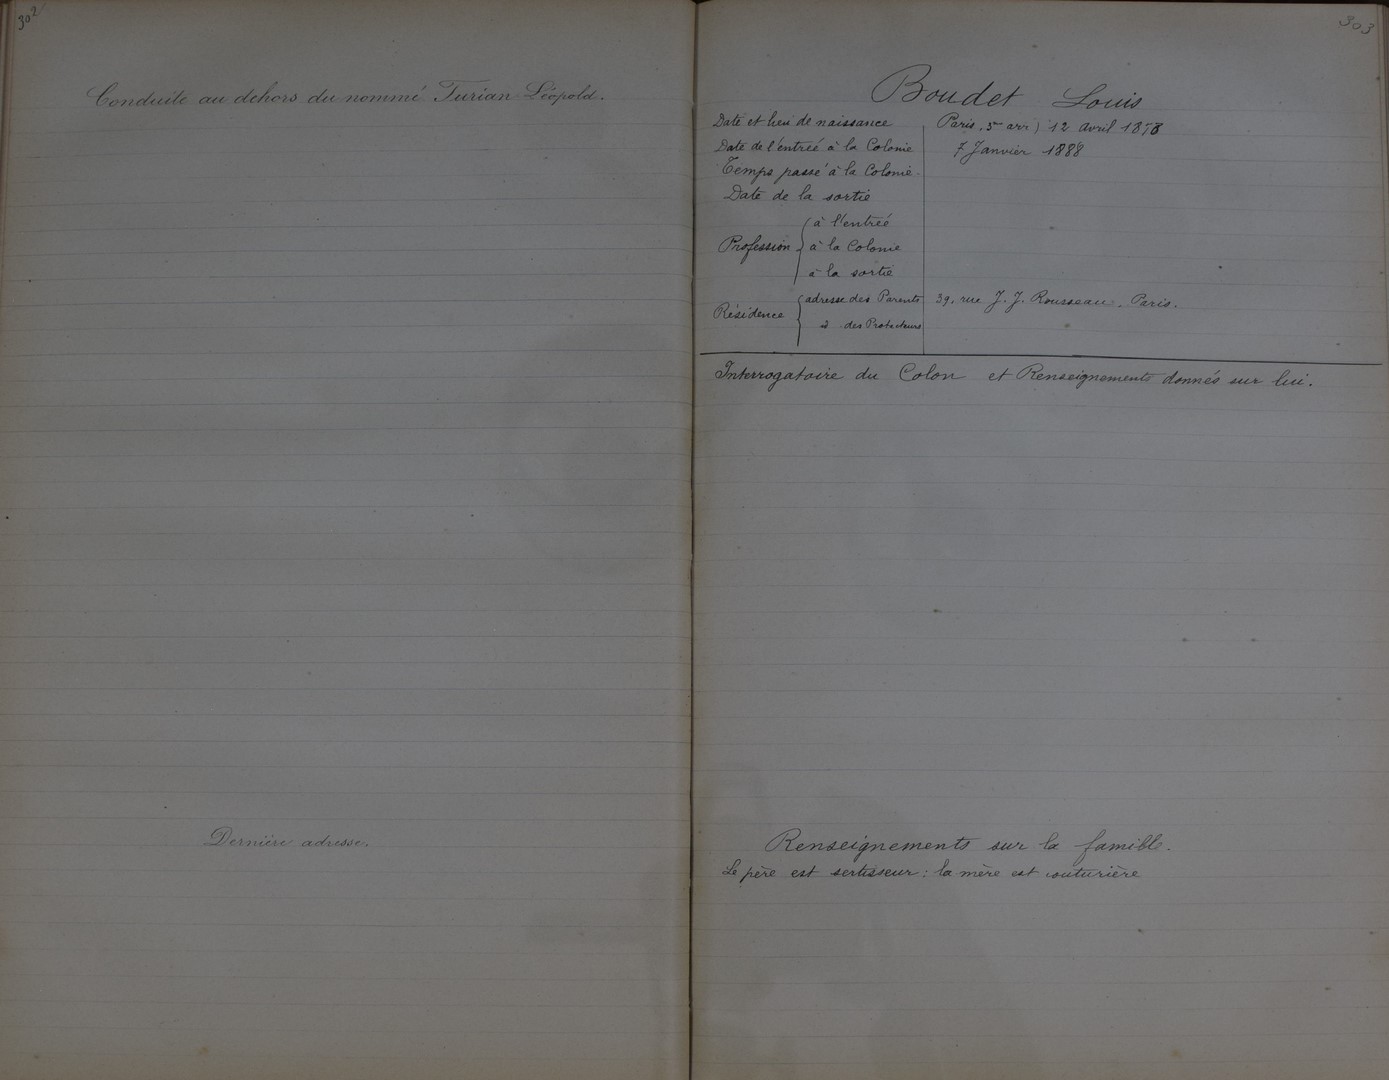 302
Conduite au dehors du nommé Turian Léopold.
Dernière adresse.
303
Boudet Louis
Date et lieu de naissance Paris, 5 arr) 12 avril 1878
Date de l'entrée à la Colonie 7 Janvier 1888
Temps passé à la Colonie.
Date de la sortie
Profession
à l'entrée
à la Colonie
à la sortie
Résidence
adresse des Parents 39, rue J. J. Rousseau, Paris.
d des Protecteurs
Interrogatoire du Colon et Renseignements donnés sur lui.
Renseignements sur la famille.
Le père est sertisseur : la mère est couturière